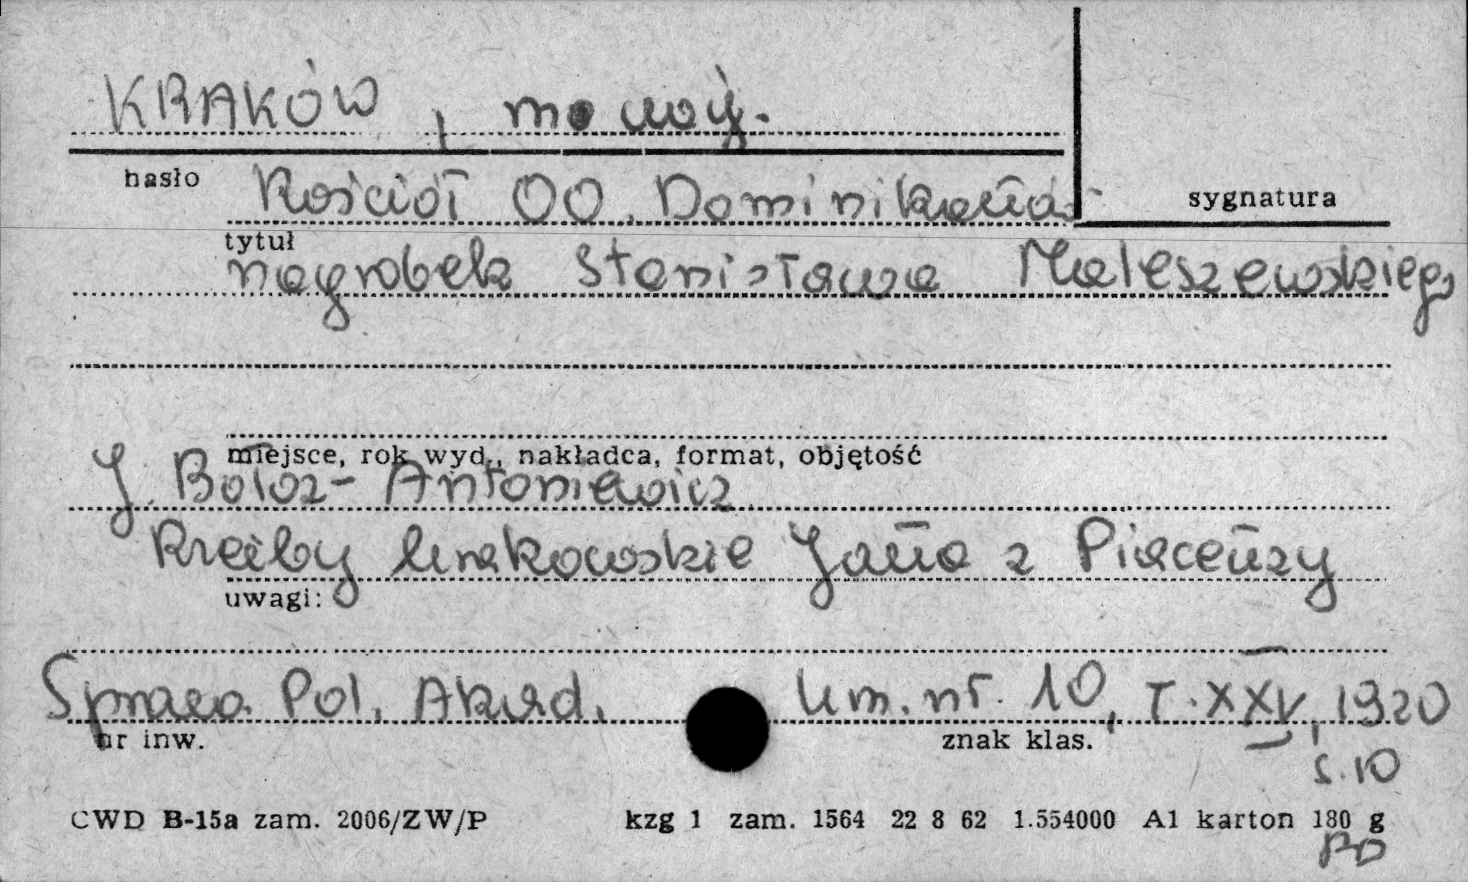 KRAKÓW, mowy.
hasło Kościół OO. Dominikanów
sygnatura
tytuł
nagrobek Stanisława Maleszewskiego
miejsce, rok wyd., nakładca, format, objętość
J. Bołoz-Antoniewicz
Rzeźby krakowskie Jana z Piacenzy
uwagi:
Spraw. Pol. Akad. Um. nr. 10, T. XXV, 1920
nr inw.
znak klas.
s. 10
CWD B-15a zam. 2006/ZW/P kzg 1 zam. 1564 22 8 62 1.554000 A1 karton 180 g